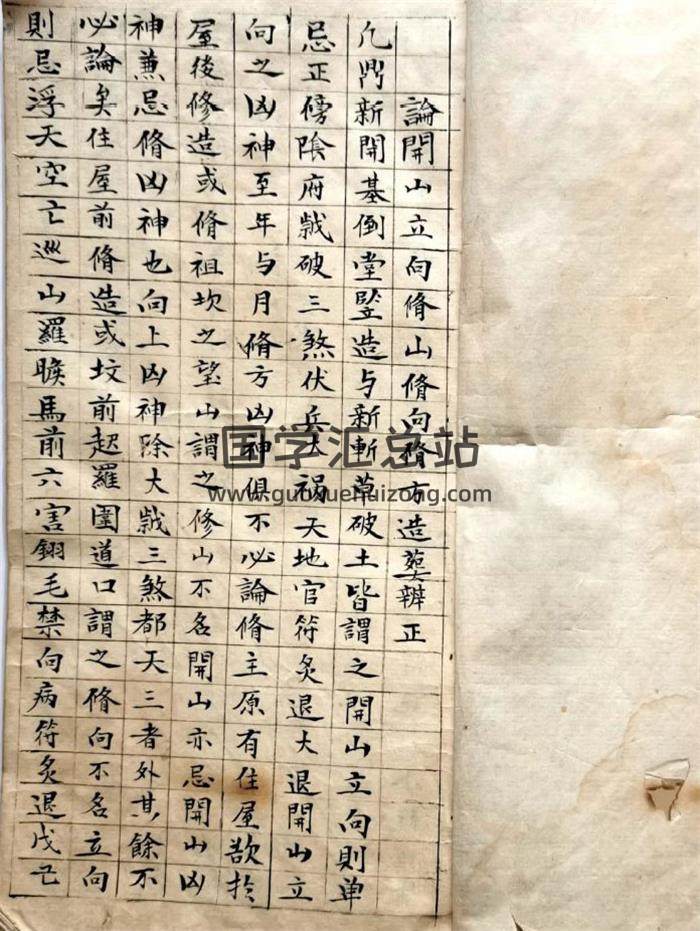 論開山立向脩山脩向脩方造塟辨正
凢鼎新開基倒堂竪造与新斬草破土皆謂之開山立向則单
忌正傍陰府戝破三煞伏兵大祸天地官符炙退大退開山立
向之凶神至年与月脩方凶神俱不必論脩主原有住屋欲扵
屋後修造或脩祖坟之望山謂之修山不名開山亦忌開山凶
神兼忌脩凶神也向上凶神除大戝三煞都天三者外其餘不
必論矣住屋前脩造或坟前起羅圍道口謂之脩向不名立向
則忌浮天空亡巡山羅睺馬前六害翎毛禁向病符炙退戊己
国学汇总站
www.guoxuehuizong.com